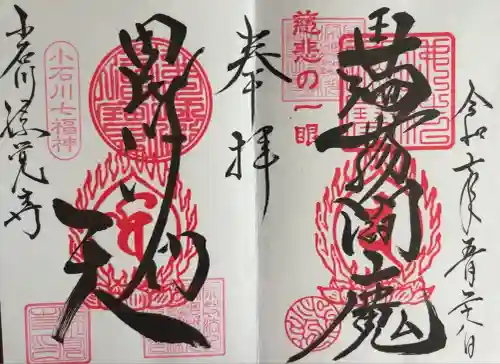 令和六年五月二八日
蒟蒻閻魔
慈悲の一眼
奉拝
毘沙門天
小石川七福神
小石川源覚寺